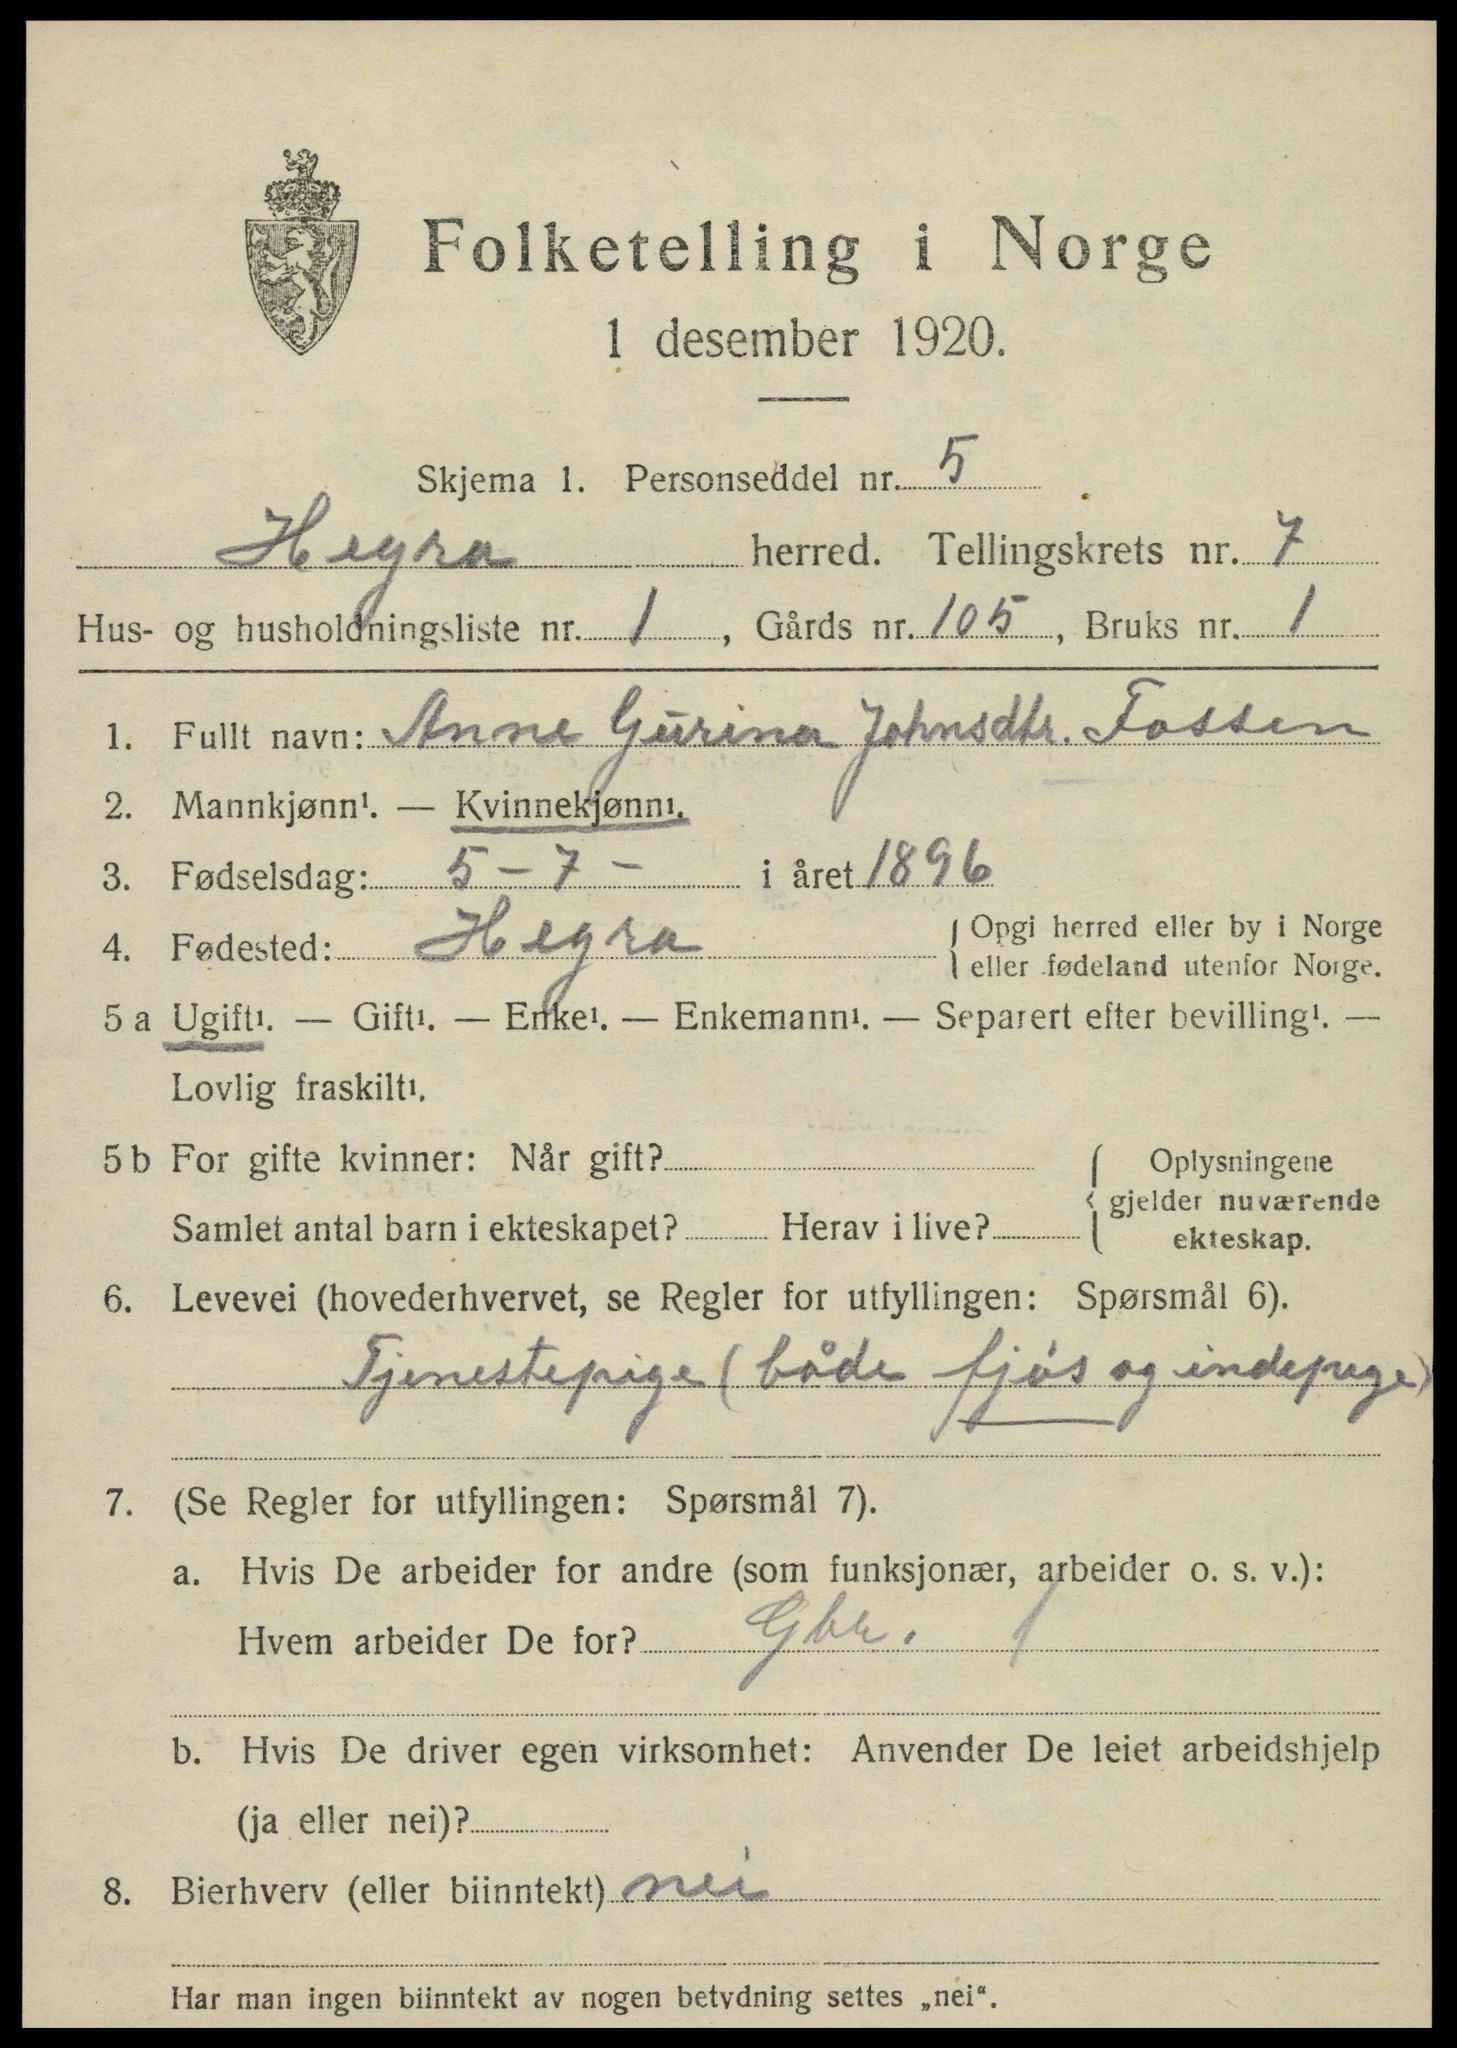 Folketelling i Norge
1 desember 1920.
Skjema 1. Personseddel nr. 5
Hegra herred. Tellingskrets nr. 7
Hus- og husholdningsliste nr. 1, Gårds nr. 105, Bruks nr. 1
1. Fullt navn: Anne Gurina Johnsdtr. Fossen
2. Mannkjønn¹. — Kvinnekjønn¹.
3. Fødselsdag: 5 - 7 - i året 1896
4. Fødested: Hegra { Opgi herred eller by i Norge
eller fødeland utenfor Norge.
5 a Ugift¹. — Gift¹. — Enke¹. — Enkemann¹. — Separert efter bevilling¹. —
Lovlig fraskilt¹.
5 b For gifte kvinner: Når gift?
Samlet antal barn i ekteskapet? Herav i live?
{ Oplysningene
gjelder nuværende
ekteskap.
6. Levevei (hovederhvervet, se Regler for utfyllingen: Spørsmål 6).
Tjenestepige (både fjös og indepige)
7. (Se Regler for utfyllingen: Spørsmål 7).
a. Hvis De arbeider for andre (som funksjonær, arbeider o. s. v.):
Hvem arbeider De for? Gbr.
b. Hvis De driver egen virksomhet: Anvender De leiet arbeidshjelp
(ja eller nei)?
8. Bierhverv (eller biinntekt) nei
Har man ingen biinntekt av nogen betydning settes „nei“.